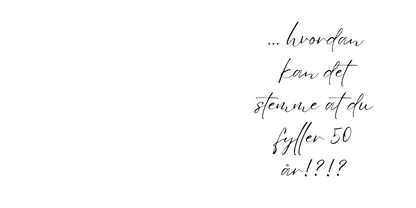 ... hvordan
kan det
stemme at du
fyller 50
år!?!?